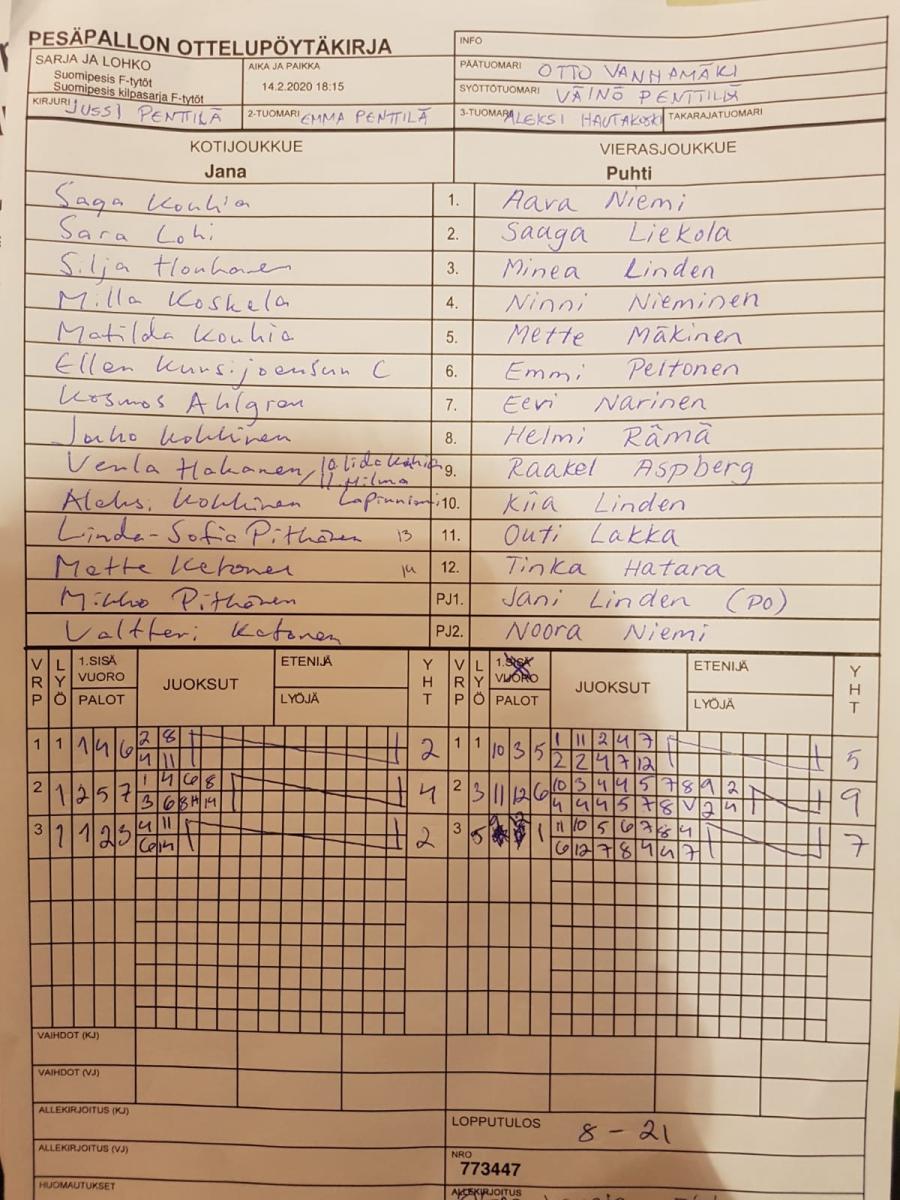 PESÄPALLON OTTELUPÖYTÄKIRJA
INFO
SARJA JA LOHKO
Suomipesis F-tytöt
Suomipesis kilpasarja F-tytöt
AIKA JA PAIKKA
14.2.2020 18:15
PÄÄTUOMARI OTTO VANHAMÄKI
SYÖTTÖTUOMARI VÄINÖ PENTTILÄ
KIRJURI JUSSI PENTTILÄ
2-TUOMARI EMMA PENTTILÄ
3-TUOMARI ALEKSI HAUTAKOSKI
TAKARAJATUOMARI
KOTIJOUKKUE
Jana
VIERASJOUKKUE
Puhti
Saga Kouhia 1. Aava Niemi
Sara Lohi 2. Saaga Liekola
Silja Honkanen 3. Minea Linden
Milla Koskela 4. Ninni Nieminen
Matilda Kouhia 5. Mette Mäkinen
Ellen Kuusijoensuu C 6. Emmi Peltonen
Kosmos Ahlgren 7. Eevi Narinen
Juho Kokkinen 8. Helmi Rämä
Venla Hakanen / 10. Iida 11. Hilma 9. Raakel Aspberg
Aleksi Kokkinen Lapinniemi 10. Kiia Linden
Linda-Sofia Pitkänen 13 11. Outi Lakka
Mette Ketonen 14 12. Tinka Hatara
Mikko Pitkänen PJ1. Jani Linden (PO)
Valtteri Ketonen PJ2. Noora Niemi
VRP LYÖ 1.SISÄ VUORO PALOT JUOKSUT ETENIJÄ LYÖJÄ YHT
VRP LYÖ 1.SISÄ VUORO PALOT JUOKSUT ETENIJÄ LYÖJÄ YHT
1 1 1 4 6 2 8 2 1 1 10 3 5 1 11 2 4 7 5
4 11 2 2 4 7 12
2 1 2 5 7 1 4 6 8 4 2 3 11 12 6 10 3 4 4 5 7 8 9 2 9
3 6 8 14 4 4 4 5 7 8 V 2 4
3 1 1 2 3 4 11 2 3 5 1 11 10 5 6 7 8 4 7
6 14 6 12 7 8 4 4 7
VAIHDOT (KJ)
VAIHDOT (VJ)
ALLEKIRJOITUS (KJ)
LOPPUTULOS 8 - 21
ALLEKIRJOITUS (VJ)
NRO
773447
HUOMAUTUKSET
ALLEKIRJOITUS